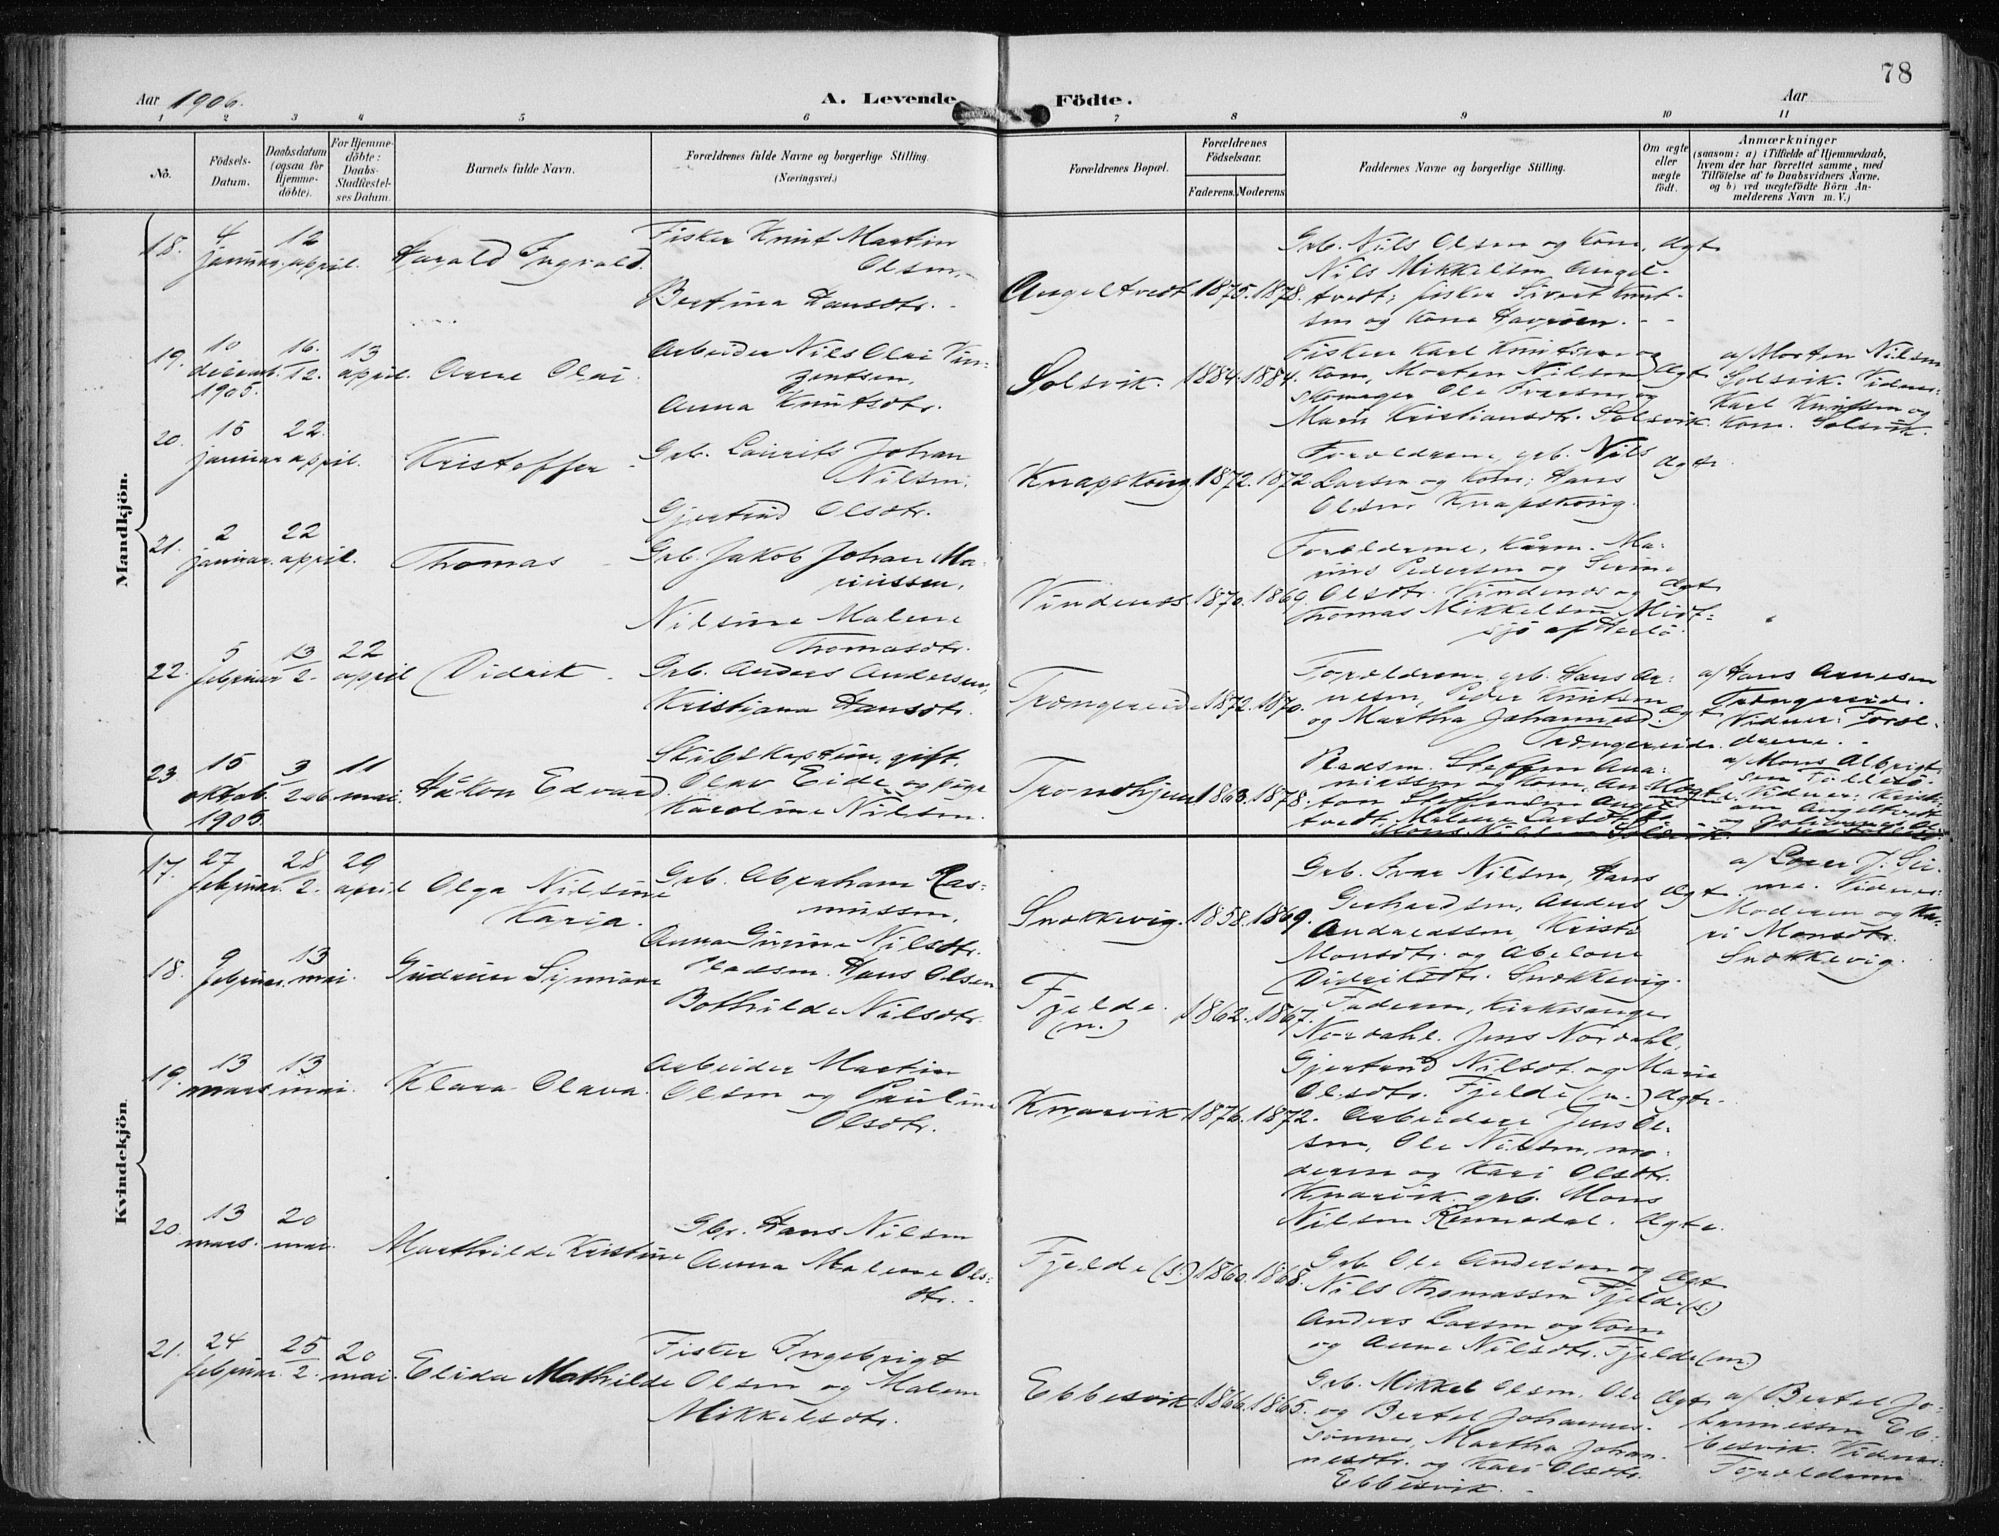 78
Aar 1906.
A. Levende Födte.
Aar
1 2 3 4 5 6 7 8 9 10 11
No.
Födsels-
Datum.
Daabsdatum
(ogsaa for
Hjemme-
döbte).
For Hjemme-
döbte:
Daabs-
Stadfæstel-
ses Datum.
Barnets fulde Navn.
Forældrenes fulde Navne og borgerlige Stilling.
(Næringsvei.)
Forældrenes Bopæl.
Forældrenes
Födselsaar.
Faderens. Moderens.
Faddernes Navne og borgerlige Stilling.
Om ægte
eller
uægte
födt.
Anmærkninger
(saasom: a) i Tilfælde af Hjemmedaab,
hvem der har forrettet samme, med
Tilföielse af to Daabsvidners Navne,
og b) ved uægtefödte Börn An-
melderens Navn m. V.)
Mandkjön.
18. 4 januar. 12 april. Harald Ingvald.
Fisker Knut Martin
Olsen,
Bertina Hansdtr.
Angeltvedt 1875. 1878.
Grb. Nils Olsen og Kone,
Nils Mikkelsen Angel-
tvedt; fisker Sivert Knut-
sen og Kone Havröen.
Ægte
19. 10 decemb. 1905. 16/12. 13 april. Arne Olai
Arbeider Nils Olai Vin-
zentsen,
Anna Knutsdtr.
Solsvik. 1884. 1884.
Fisker Karl Knutsen og
Kone, Morten Nilsen,
skomager Ole Ivarsen og
Marie Kristiansdtr. Solsvik.
Ægte
a/ Morten Nilsen
Solsvik. Vidner:
Karl Knutsen og
Kone. Solsvik.
20. 15 januar 22 april. Kristoffer
Grb. Laurits Johan
Nilsen.
Gjertrud Olsdtr.
Knapskong 1872. 1872
Forældrene, grb. Nils
Larsen og Kone; Hans
Olsen Knapskong.
Ægte
21. 2 januar. 22 april. Thomas
Grb. Jakob Johan Ma-
riussen,
Nilsine Malene
Thomasdtr.
Vindenes. 1870. 1869.
Forældrene, Ma-
rius Pedersen og Serine
Olsdtr. Vindenes og
Thomas Mikkelsen Midt-
sjö af Herlö.
Ægte
22. 5 februar 13/2. 22 april Didrik
Grb. Anders Andersen,
Kristiana Hansdtr.
Trængereide 1872. 1870.
Forældrene, grb. Hans Ar-
nesen, Peder Knutsen
og Martha Johannesd.
Trængereide.
Ægte
a/ Hans Arnesen
Trængereide.
Vidner: Foræl-
drene.
23 15 oktob. 1905. 3/2 06 11 mai. Håkon Edvard
Skibskaptein, gift,
Olav Eide og pige
Karoline Nilsen.
Trondhjem 1863. 1878.
Pladsm. Steffen
og Kone,
Steffensen Angel-
tvedt, Malene Larsdtr.
Mons Nilsen Solsvik.
a/ Mons Albrigt-
sen Tellnes.
Vidner:
Angeltvedt
og
Kvindekjön.
17. 27 februar. 28/2. 29 april Olga Nilsine
Karia.
Grb. Abraham Ras-
mussen,
Anna Gurine Nilsdtr.
Snekkevig. 1858. 1869.
Grb. Ivar Nilsen, Hans
Gerhardsen, Anders
Andreassen, Kristi
Monsdtr. og Abelone
Didriksdtr. Snekkevig.
Ægte
a/ Lærer J. Sei-
me. Vidner:
Moderen og Ka-
ri Monsdtr.
Snekkevig.
18. 9 februar. 13 mai. Gudrun Synnöve
Pladsm. Hans Olsen
Bothilde Nilsdtr.
Fjelde.
(n.) 1862. 1867.
Faderen, Kirkesanger
Nordahl. Jens Nordahl,
Gjertrud Nilsdt. og Marie
Olsdtr. Fjelde (n.) Ægte.
19. 13 mars 13 mai. Klara Olava.
Arbeider Martin
Olsen og Pauline
Olsdtr.
Knarvik 1876. 1872.
Arbeidere Jens Ol-
sen, Ole Nilsen, mo-
deren og Kari Olsdtr.
Knarvik. grb. Mons
Nilsen Rennedal. Ægte.
20. 13 mars. 20 mai. Marthilde Kristine
Gbr. Hans Nilsen
Anna Malene Ols-
dtr.
Fjelde (s.) 1860. 1868.
Grb. Ole Andersen og
Nils Thomassen Fjelde (s.)
Anders Larsen og Kone
og Anne Nilsdtr. Fjelde (n.)
Ægte
21. 24 februar. 25/2. 20 mai. Elida Mathilde
Fisker Ingebrigt
Olsen og Malene
Mikkelsdtr.
Ebbesvik 1866. 1865.
Grb. Mikkel Olsen, Ole
og Bertel Johannes-
sönner, Martha Johan-
nesdtr. og Kari Olsdtr.
Ebbesvik.
Ægte
a/ Bertel Jo-
hannessen Eb-
besvik. Vidner:
Forældrene